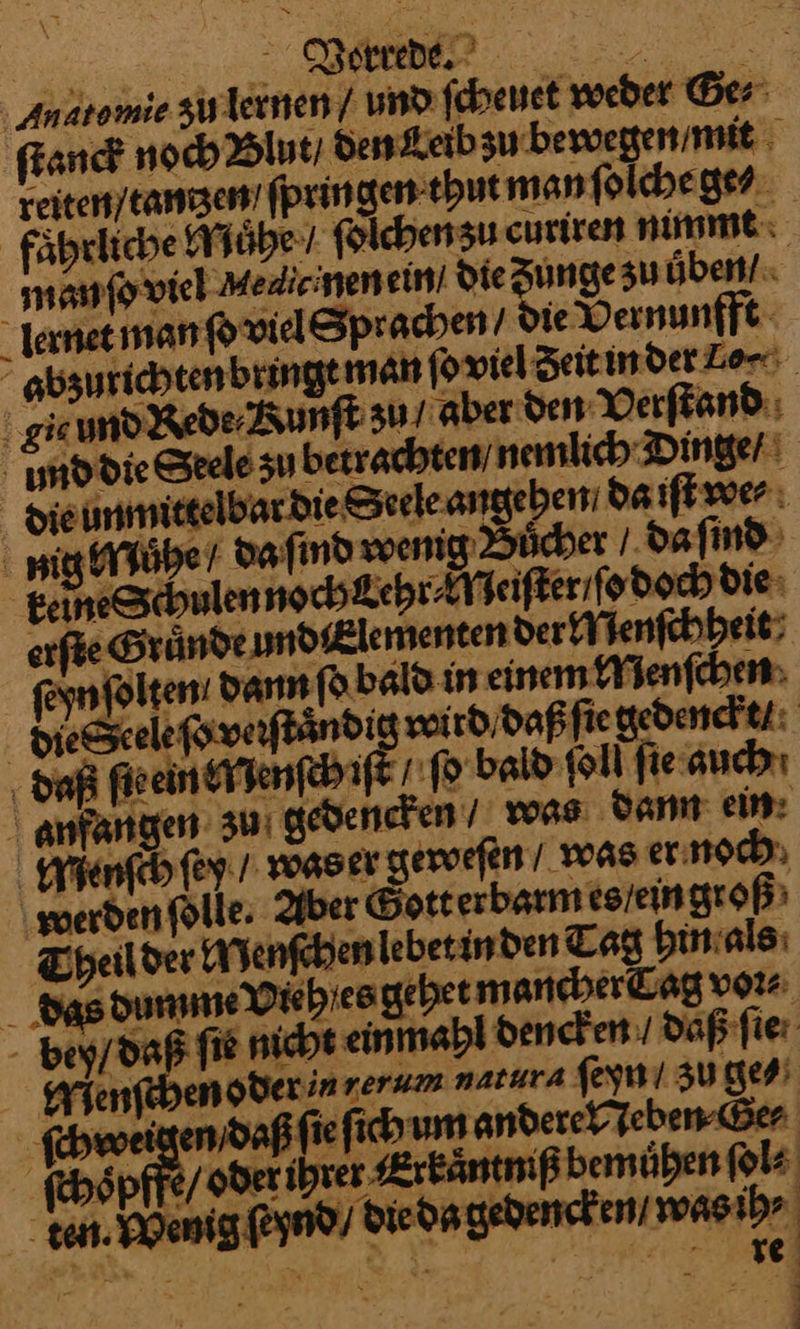 Vorrede.
Anatomie zu lernen / und ſcheuet weder Ge⸗
ſtanck noch Blut / den Leib zu bewegen / mit
reiten / tantzen / ſpringen thut man ſolche ge⸗
faͤhrliche Muͤhe / ſolchen zu curiren nimmt
man ſo viel Medicinen ein / die Zunge zu uͤben /
lernet man ſo viel Sprachen / die Vernunfft
abzurichten bringt man ſo viel Zeit in der Lo⸗
gic und Rede⸗Kunſt zu / aber den Verſtand
und die Seele zu betrachten / nemlich Dinge /
die unmittelbar die Seele angehen / da iſt we⸗
nig Muͤhe / da ſind wenig Buͤcher / da ſind
keine Schulen noch Lehr⸗Meiſter / ſo doch die
erſte Gruͤnde und Elementen der Menſchheit
ſeyn ſolten / dann ſo bald in einem Menſchen
die Seele ſo verſtaͤndig wird / daß ſie gedenckt /
daß ſie ein Menſch iſt / ſo bald ſoll ſie auch
anfangen zu gedencken / was dann ein
Menſch ſey / was er geweſen / was er noch
werden ſolle. Aber Gott erbarm es / ein groß
Theil der Menſchen lebet in den Tag hin als
das dumme Vieh / es gehet mancher Tag vor⸗
bey / daß ſie nicht einmahl dencken / daß ſie
Menſchen oder in rerum natura ſeyn / zu ge⸗
ſchweigen / daß ſie ſich um andere Neben⸗Ge⸗
ſchoͤpffe / oder ihrer Erkaͤntniß bemuͤhen ſol⸗
ten. Wenig ſeynd / die da gedencken / was ih⸗
re